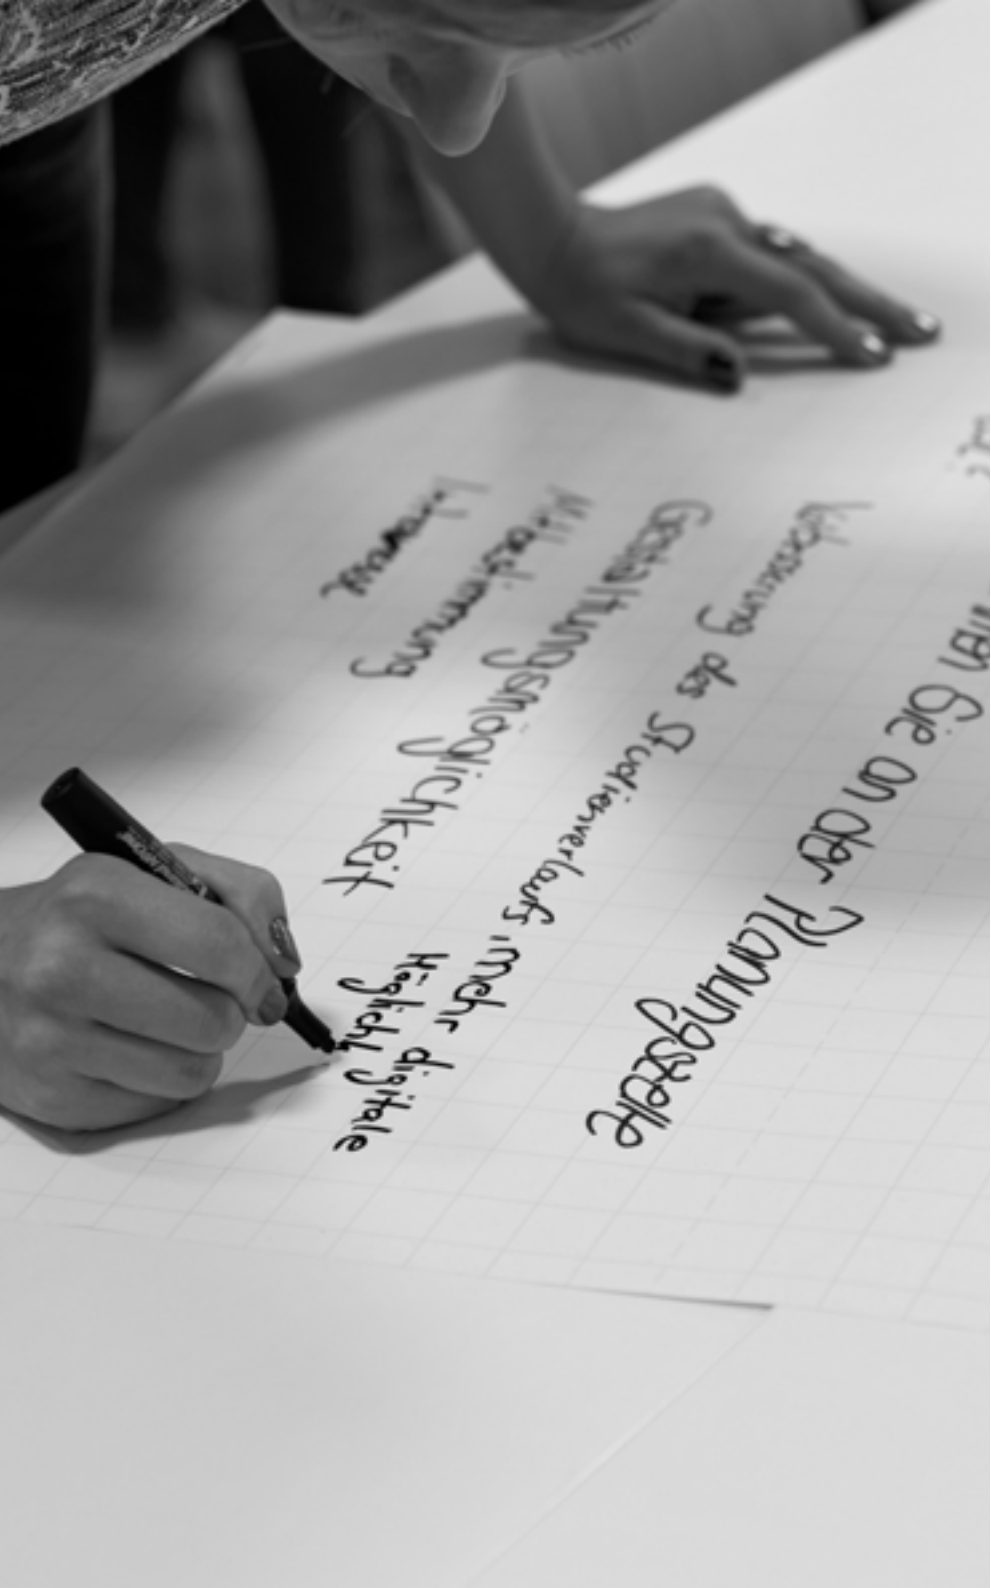 Sie an der Planungszelle
Verbesserung des Studienverlaufs, mehr digitale
Möglichk
Gestaltungsmöglichkeit
Mitbestimmung
Interesse